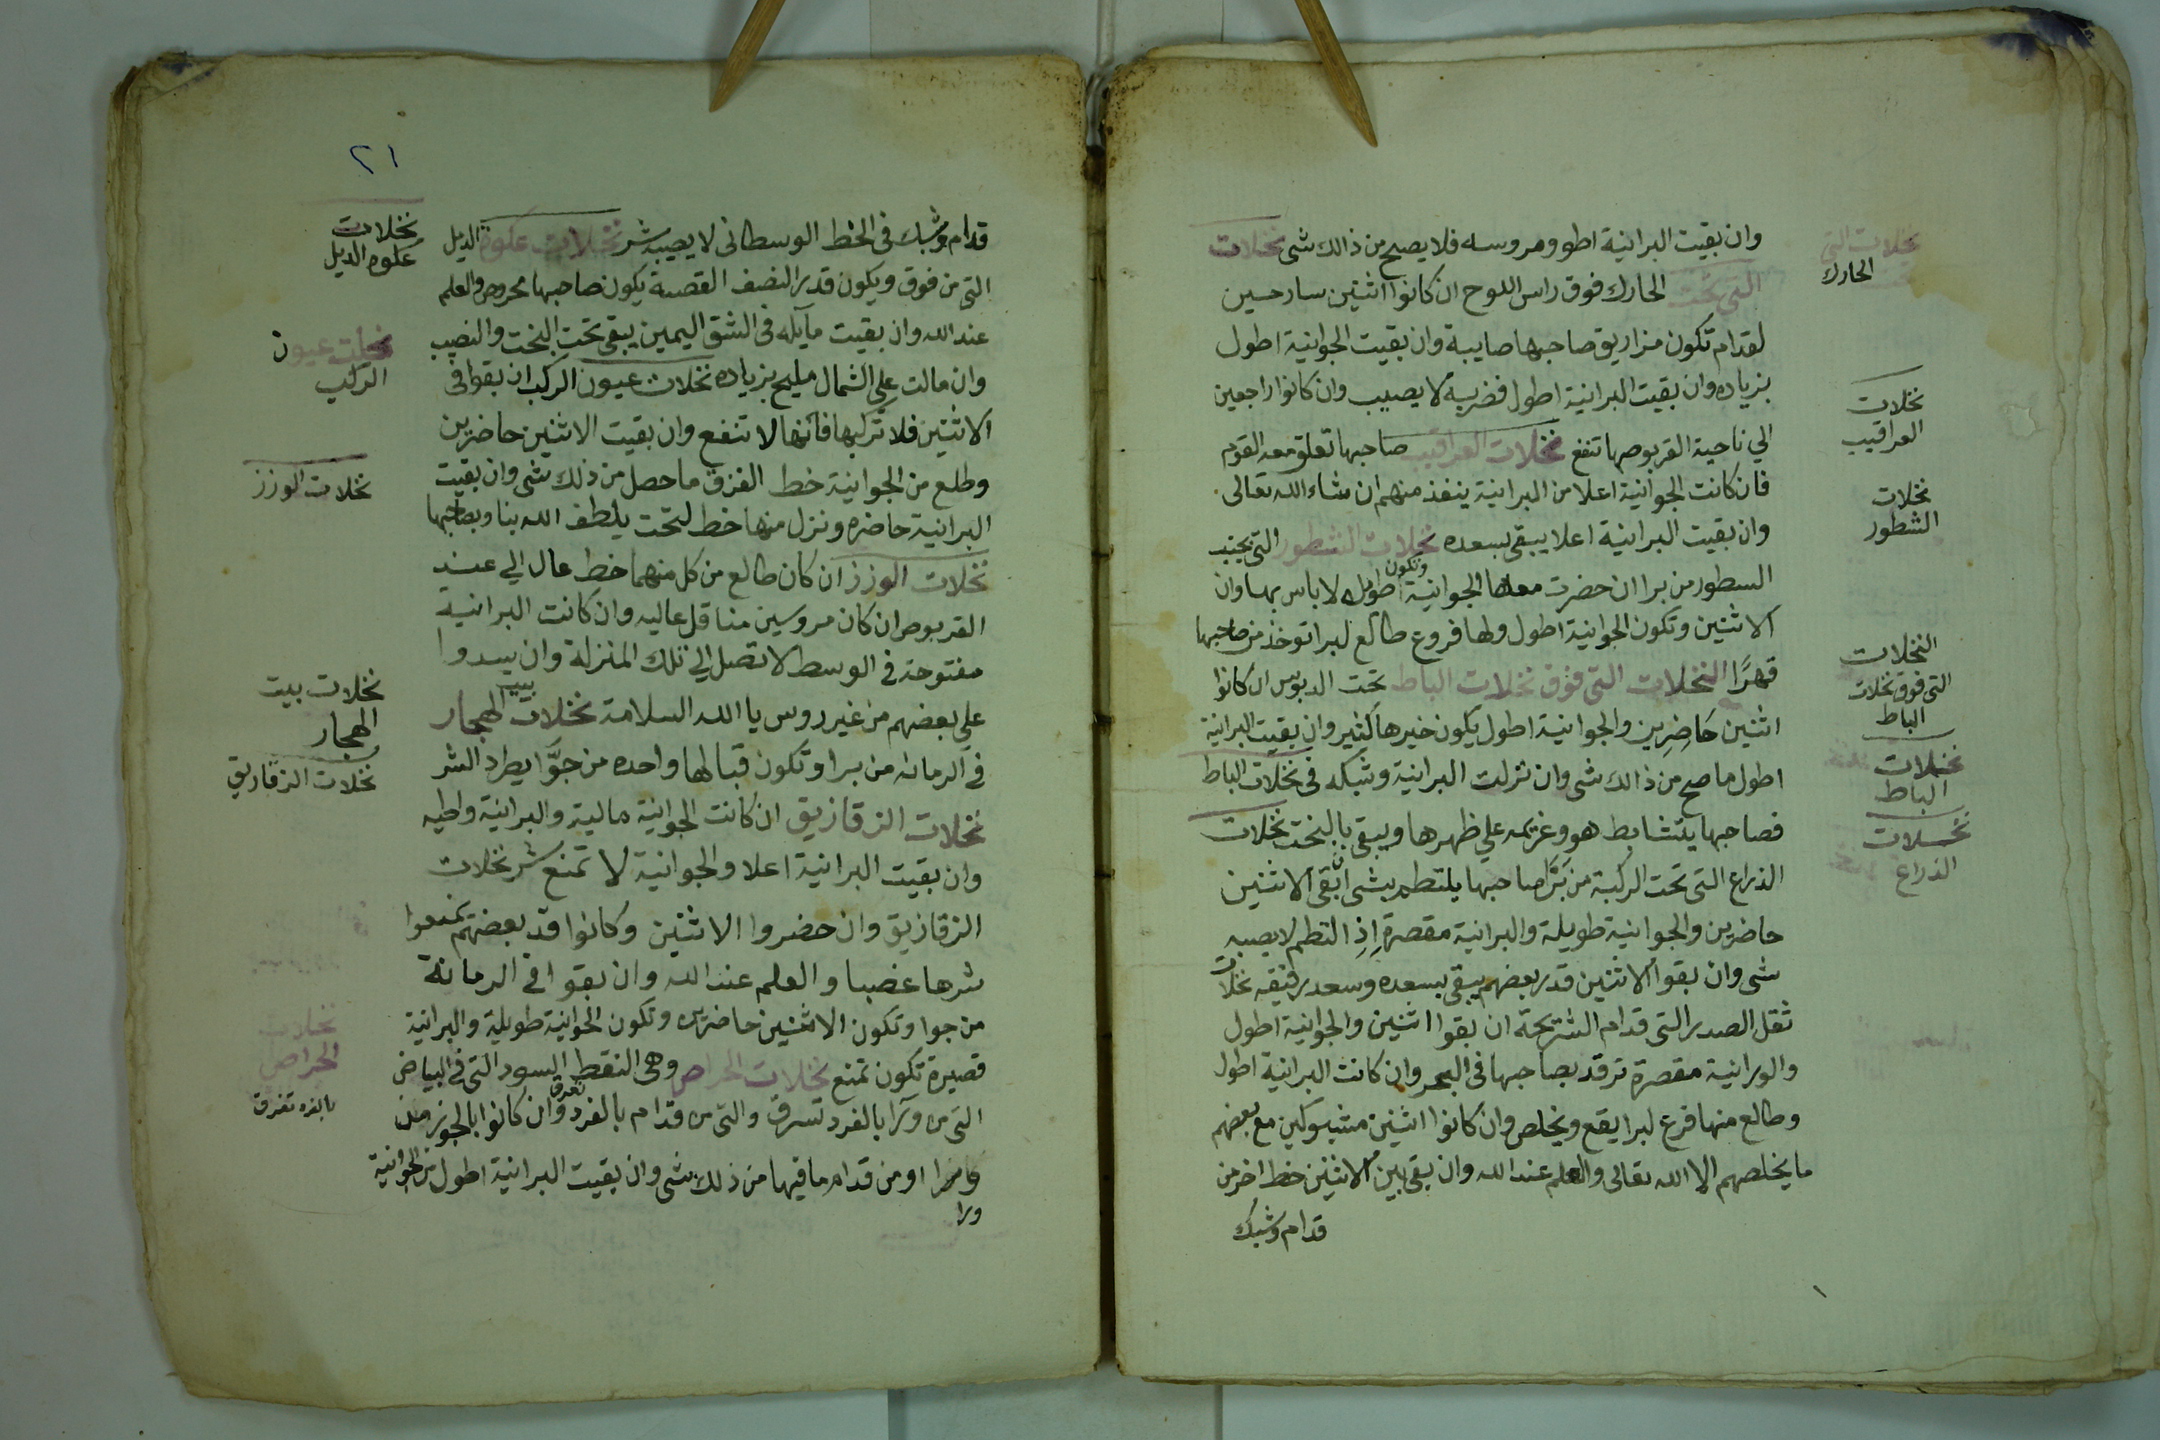 وان بقيت البرانية اطو ومروسه فلا يصيح من ذالك شى نخلات
التى تحت الحارك فوق راس اللوح ان كانوا اثنين سارحين
لقدام تكون مزاريق صاحبها صايبة وان بقيت الجوانية اطول
بزياده وان بقيت البرانية اطول فضربه لا يصيب وان كانوا راجعين
الي ناحية القربوص ما تنفع نخلات العراقيب صاحبها تعلق معه القوم
فان كانت الجوانية اعلا من البرانية ينفذ منهم ان شاء الله تعالى
وان بقيت البرانية اعلا يبقى بسعده نخلات الشطور التى بجنب
السطور من برا ان حضرت معها الجوانية وتكون اطول لا باس بها وان
الاثنين وتكون الجوانية اطول ولها فروع طالع لبرا توخذ من صاحبها
قهرًا النخلات التى فوق نخلات الباط تحت الدبوس ان كانوا
اثنين حاضرين والجوانية اطول يكون خيرها كثير وان بقيت البرانية
اطول ما صح من ذالك شى وان نزلت البرانية وشبكه فى نخلات الباط
فصاحبها يتشابط هو وغريمه علي ظهرها ويبقى بالبخت نخلات
الذراع التى تحت الركبة من برًا صاحبها يلتطم بشى ان بقى الاثنين
حاضرين والجوانية طويلة والبرانية مقصرة إذِا التطم لا يصيبه
شى وان بقوا الاثنين قدر بعضهم يبقى بسعده وسعد رفيقه نخلات
ثقل الصدر التى قدام الشريحة ان بقوا اثنين والجوانية اطول
والورانية مقصرة ترقد بصاحبها فى البحر وان كانت البرانية اطول
وطالع منها فرع لبرا يقع ويخلص وان كانوا اثنين مشبوكين مع بعضهم
ما يخلصهم الا الله تعالى والعلم عند الله وان بقى بين الاثنين خط اخر من
قدام وشبك
نخلات التى
تحت الحارك
نخلات
العراقيب
نخلات
الشطور
النخلات
التى فوق نخلات
الباط
نخلات
الباط
نخلات
الذراع
٢١
قدام وشبك فى الخط الوسطانى لا يصيبه شر نخلات علوة الديل
التى من فوق ويكون قدر النصف القصبة يكون صاحبها محروص والعلم
عند الله وان بقيت مايله فى الشق اليمين يبقى تحت البخت والنصيب
وان مالت علي الشمال مليح بزياده نخلات عيون الركب ان بقوا فى
الاثنين فلا تركبها فانها لا تنفع وان بقيت الاثنين حاضرين
وطلع من الجوانية خط الفزق ما حصل من ذلك شى وان بقيت
البرانية حاضره ونزل منها خط لتحت يلطف الله بنا وبصاحبها
نخلات الوزز ان كان طالع من كل منهما خط عال الي عند
القربوص ان كان مروسين مناقل عاليه وان كانت البرانية
مفتوحة فى الوسط لا تصل الي تلك المنزلة وان يسدوا
علي بعضهم من غير روس يا الله السلامة نخلات بيت الهجار
فى الرمانه من برا وتكون قبالها واحده من جوَّا يطرد الشر
نخلات الزقازيق ان كانت الجوانية مالية والبرانية واطيه
وان بقيت البرانية اعلا والجوانية لا تمنع شر نخلات
الزقازيق وان حضروا الاثنين وكانوا قد بعضهم تمنعوا
شرها غضبا والعلم عند الله وان بقوا فى الرمانة
من جوا وتكون الاثنين حاضرين وتكون الجوانية طويلة والبرانية
قصيرة تكون تمنع نخلات الحراص وهى النقط السود التى فى البياض
التى من ورا بالفرد تسرق والتى من قدام بالفرد تغرق وان كانوا بالجوز من
ورا او من قدام ما فيها من ذلك شى وان بقيت البرانية اطول من الجوانية
ورا
نخلات
علوه الديل
نخلات عيون
الركب
نخلات الوزز
نخلات بيت
الهجار
نخلات الزقازيق
نخلات
الحراص
بالفرد تغرق